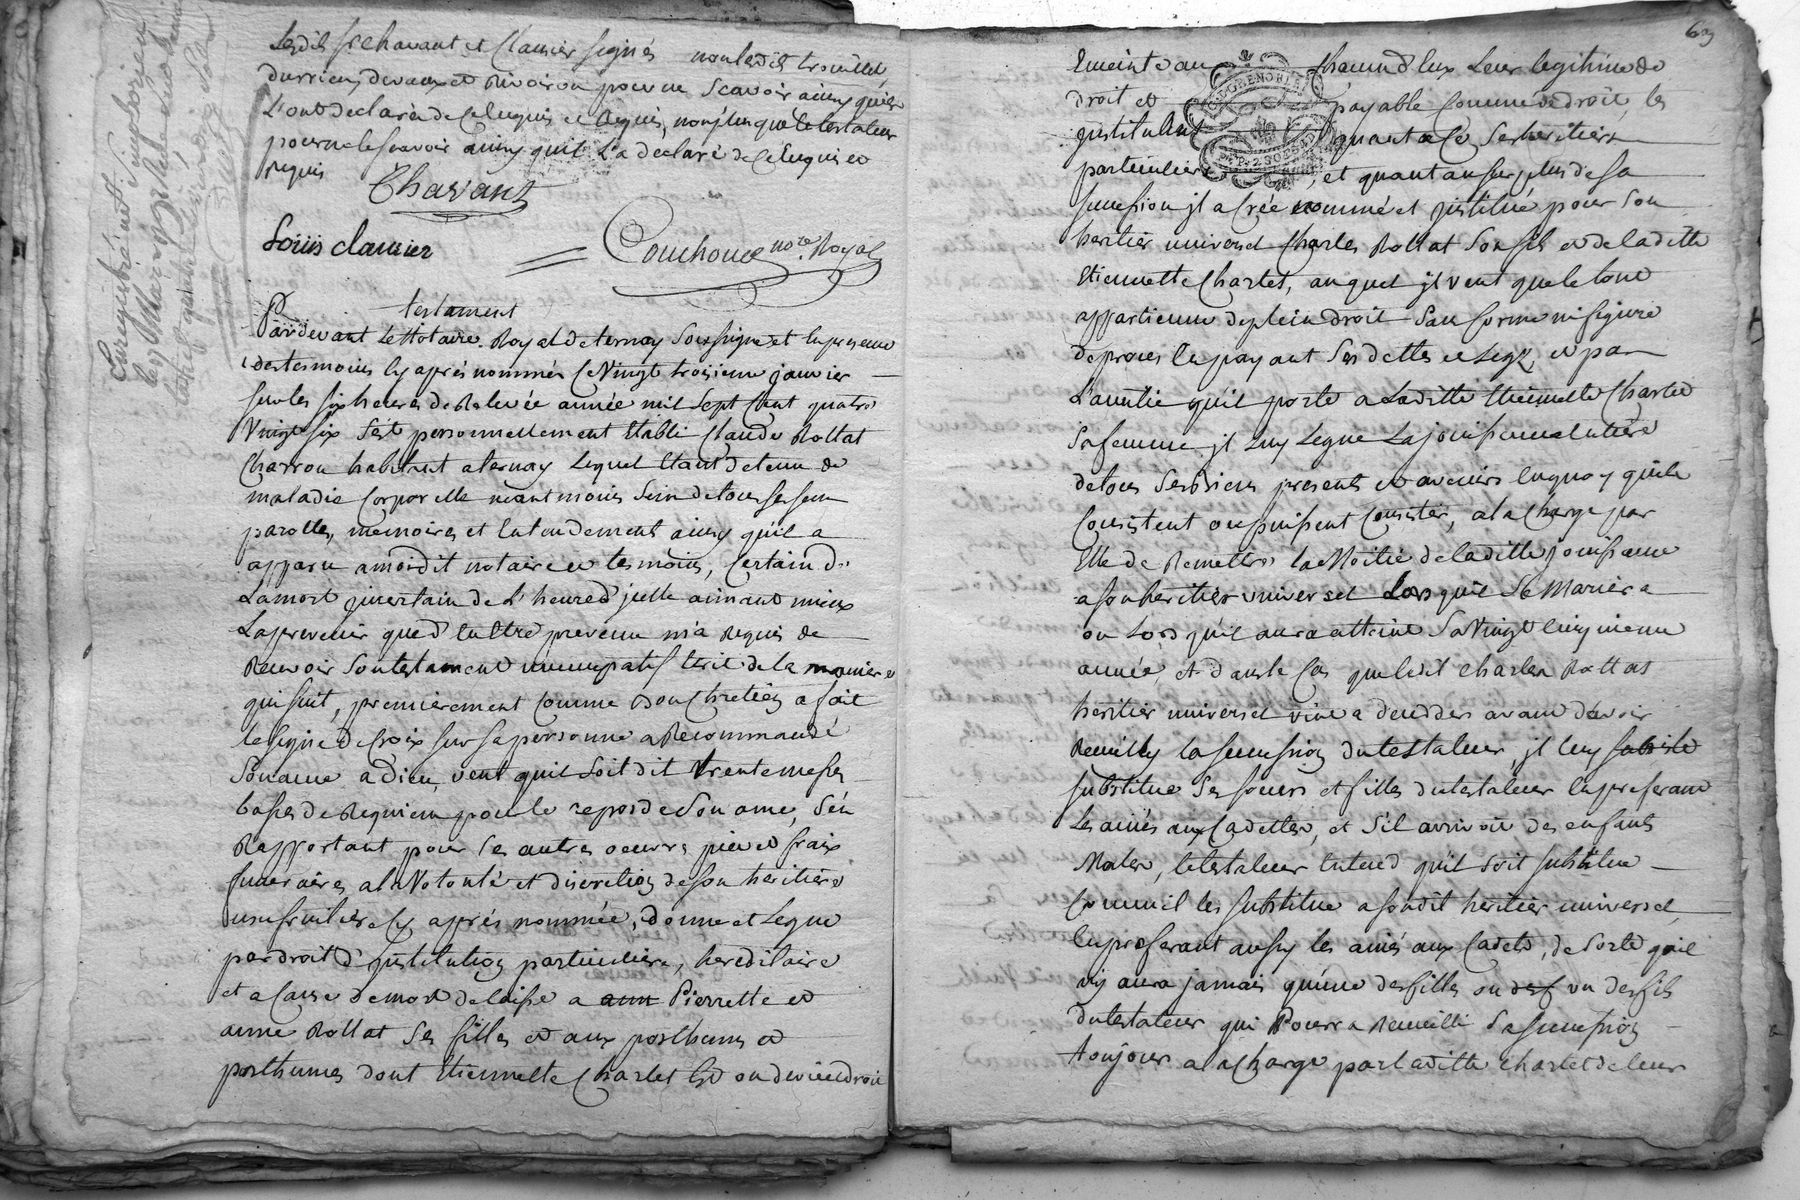 Lesdits sr chavant et Clausier signés non ledit
durrieu, devaux et Rivoiron pour ne Scavoir ainsy qu'ils
L'ont declaré de ce enquis et Requis, non plus que le testateur
pour ne le scavoir ainsy quil L'a declaré de ce Enquis et
requis
Chavant
Loüis clausier
Couchoud nore. Royal
Enregistré
testament
Pardevant Le Notaire Royal de ternay Soussigné et En presence
des temoins cy aprés nommés ce Vingt troisieme janvier
sur les six heures de Relevée année mil sept Cent quatre
Vingt six S'est personnellement Etabli Claude Rollat
Charron habitant a ternay Lequel Etant detenu de
maladie Corporelle neantmoins Sain de tous ses sens
parolles, memoires et Entendement ainsy qu'il a
apparu a mondit notaire et temoins, Certain de
La mort jncertain de L'heure d'jcelle aimant mieux
La prevenir que d'En Etre prevenu m'a Requis de
Recevoir Son testament nuncupatif Ecrit de la maniere
qui suit, premierement Comme bon Chretien a fait
le signe de Croix sur sa personne a Recommandé
Son ame a dieu, veut qu'il Soit dit trente messes
basses de Requiem pour le repos de Son ame, S'En
Rapportant pour Ses autres oeuvres pies et frais
funeraires a la Volonté et discretion de son heritiere
usufruitiere cy aprés nommée, donne et Legue
par droit d'jnstitution particuliere, hereditaire
et a Cause de mort delaisse a aux Pierrette et
anne Rollat Ses filles et aux posthumes et
posthumes dont Etiennette Charlet Est ou deviendroit
63
Enceinte au Chacun d'Eux Leur legitime de
droit et payable Comme de droit les
jnstituant quant a Ce Ses heritiers
particuliers, et quant au surplus de sa
succession jl a Créé nommé et jnstitué pour Son
heritier universel Charles Rollat Son fils et de laditte
Etiennette Charlet, auquel jl veut que le tout
appartienne de plein droit San forme ni figure
de proces En payant Ses dettes et Legs, et par
L'amitié qu'il porte a Laditte Etiennette Charlet
Sa femme jl Luy Legue La jouissance Entiere
de tous Ses biens presents et avenirs En quoy qu'ils
Consistent ou puissent Consister, a la Charge par
Elle de Remettre la Moitié de laditte jouissance
a son heritier universel Lors qu'il Se Mariera
ou Lors qu'il aura atteint Sa Vingt Cinquieme
année, Et dans le Cas que ledit Charles Rollat
heritier universel vint a deceder avant d'avoir
Recueilly la succession du testateur, jl luy
substitue Ses soeurs et filles du testateur En preferant
Les ainés aux Cadettes, et S'il arrivoit des enfants
Males, le testateur Entend qu'il soit substitué
Comme il les substitue a sondit heritier universel,
En preferant aussy les ainés aux Cadets, de Sorte qu'il
n'y aura jamais qu'une des filles ou un des fils
du testateur qui Pourra Recueilli Sa succession
toujours a la Charge par laditte Charlet de leur